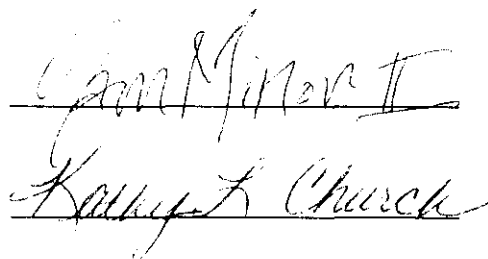 Minor II
Kathy L Church